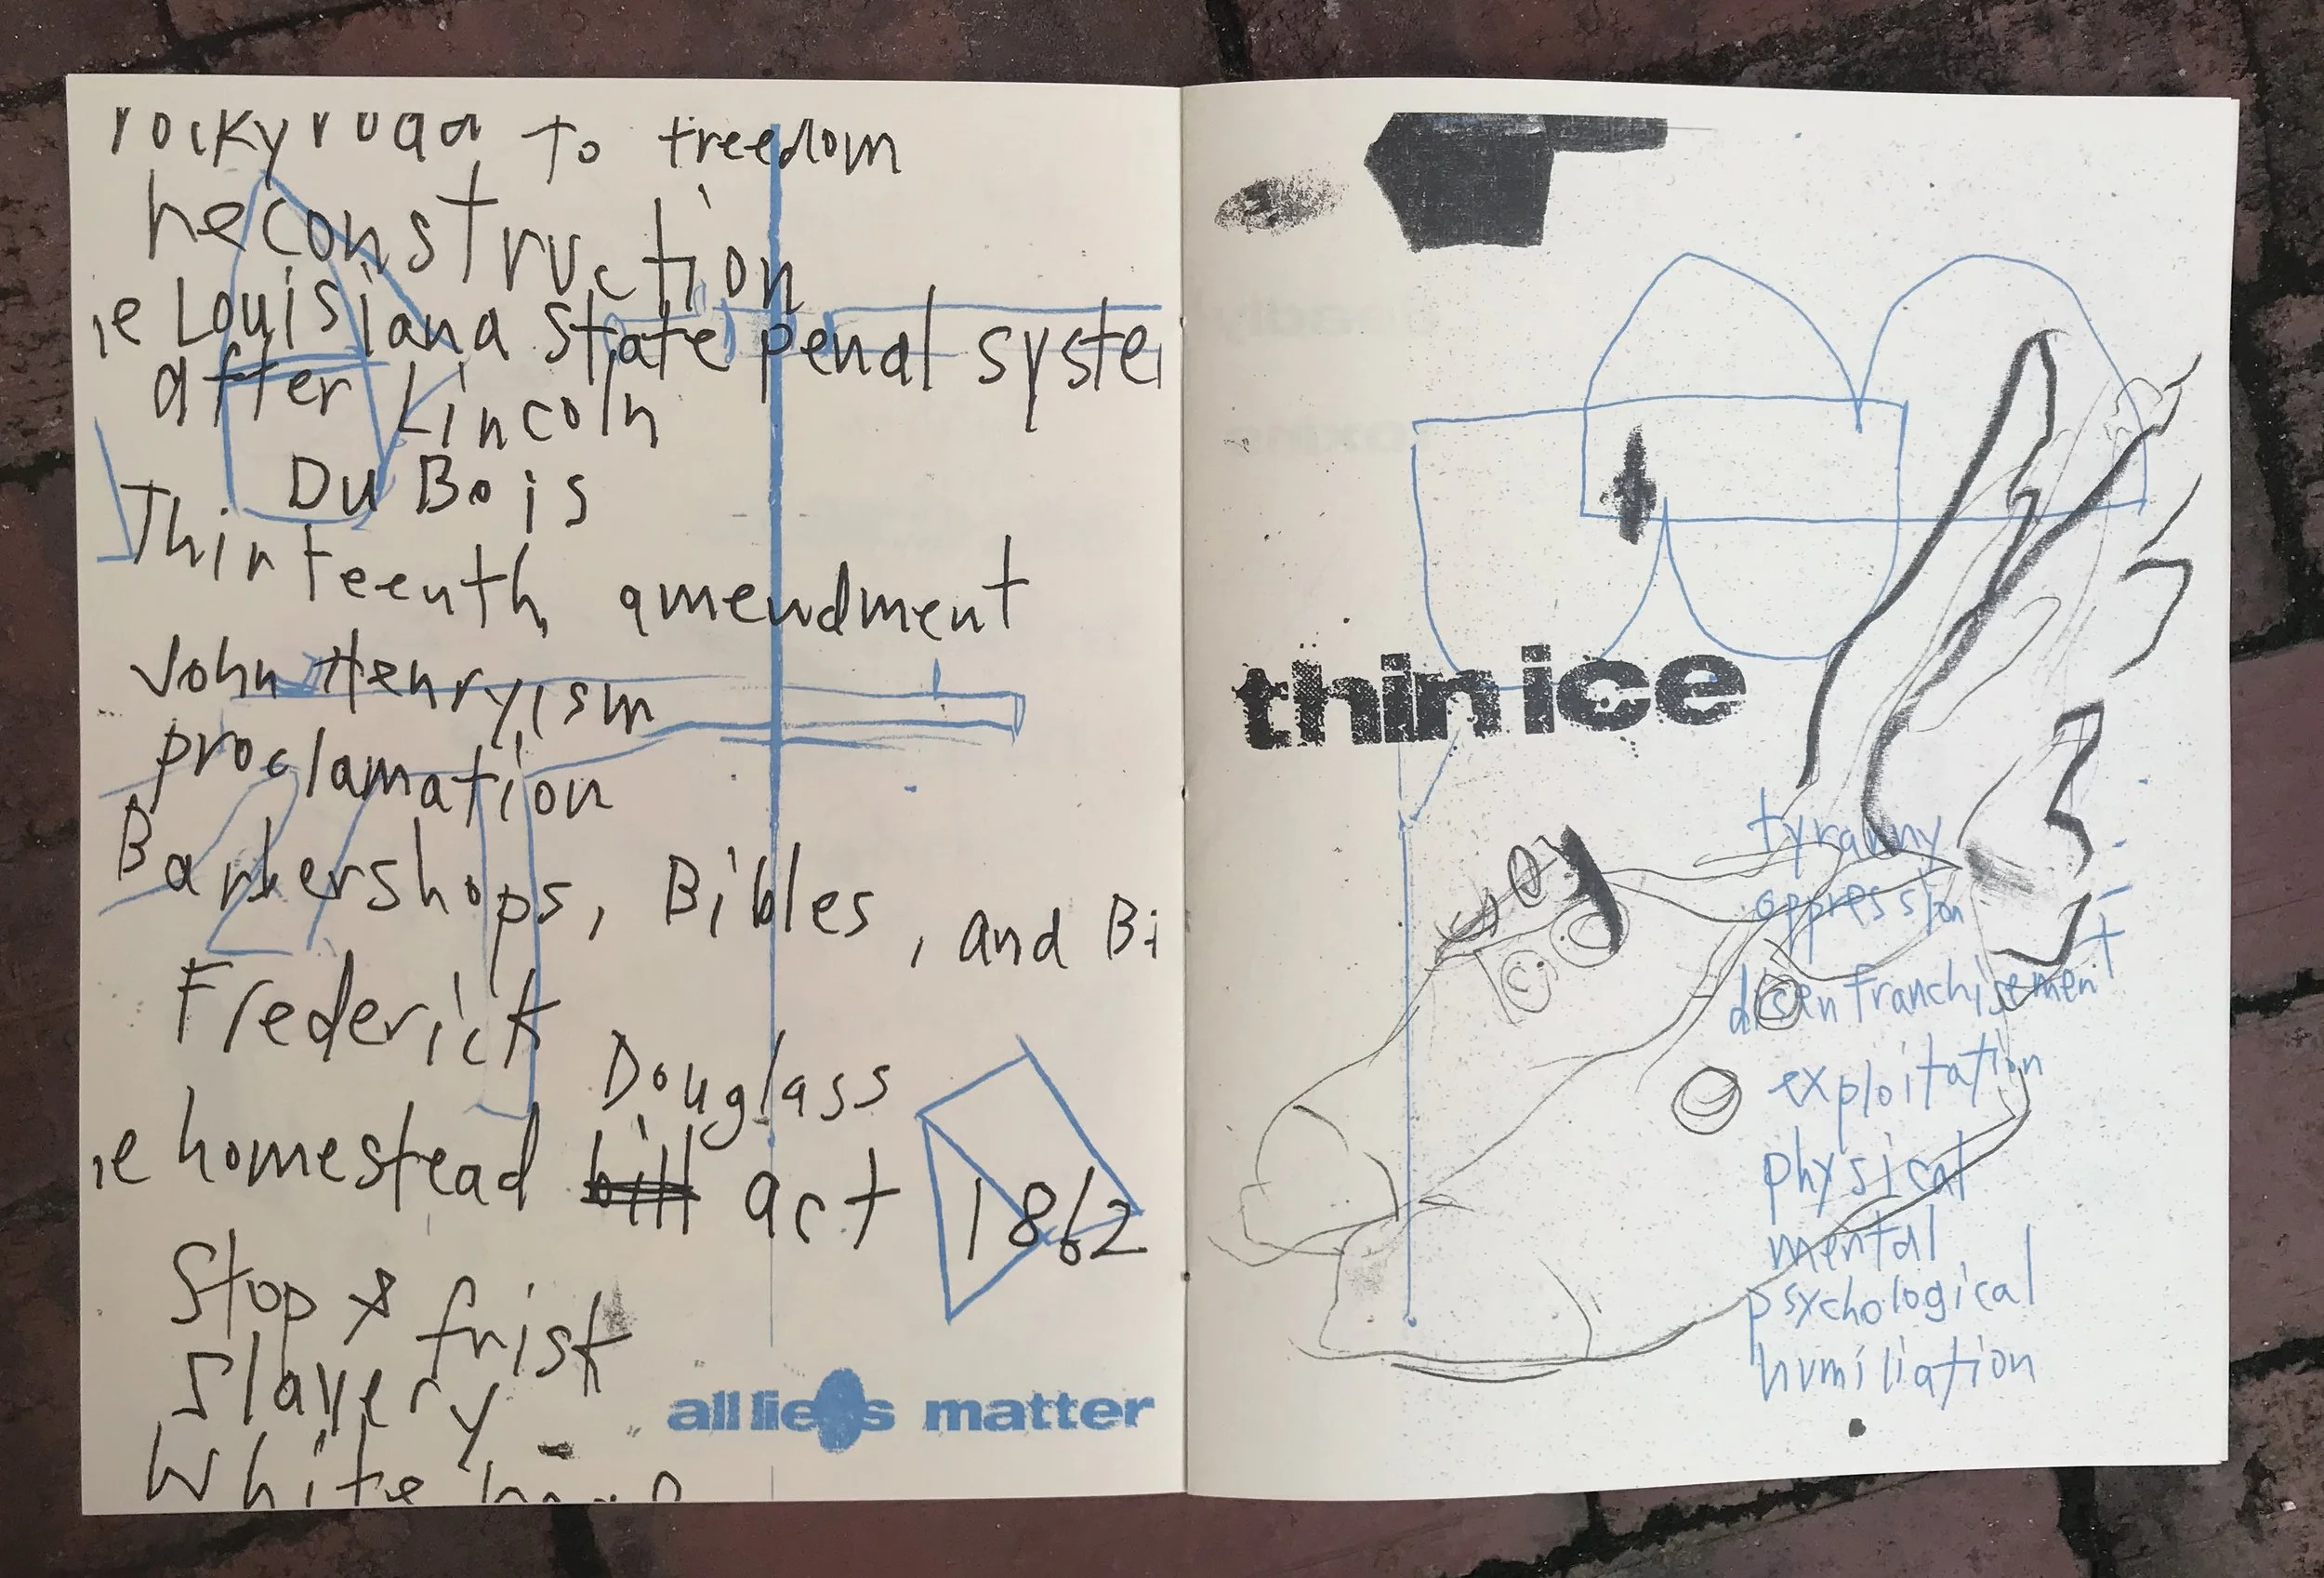 rocky road to freedom
Reconstruction
Louisiana state penal
after Lincoln
Du Bois
Thirteenth amendment
John Henryism
proclamation
Barbershops, Bibles, and
Frederick
Douglass
homestead bill act 1862
Stop & frisk
Slavery
White
all lies matter
thin ice
tyranny
oppression
disenfranchisement
exploitation
physical
mental
psychological
humiliation